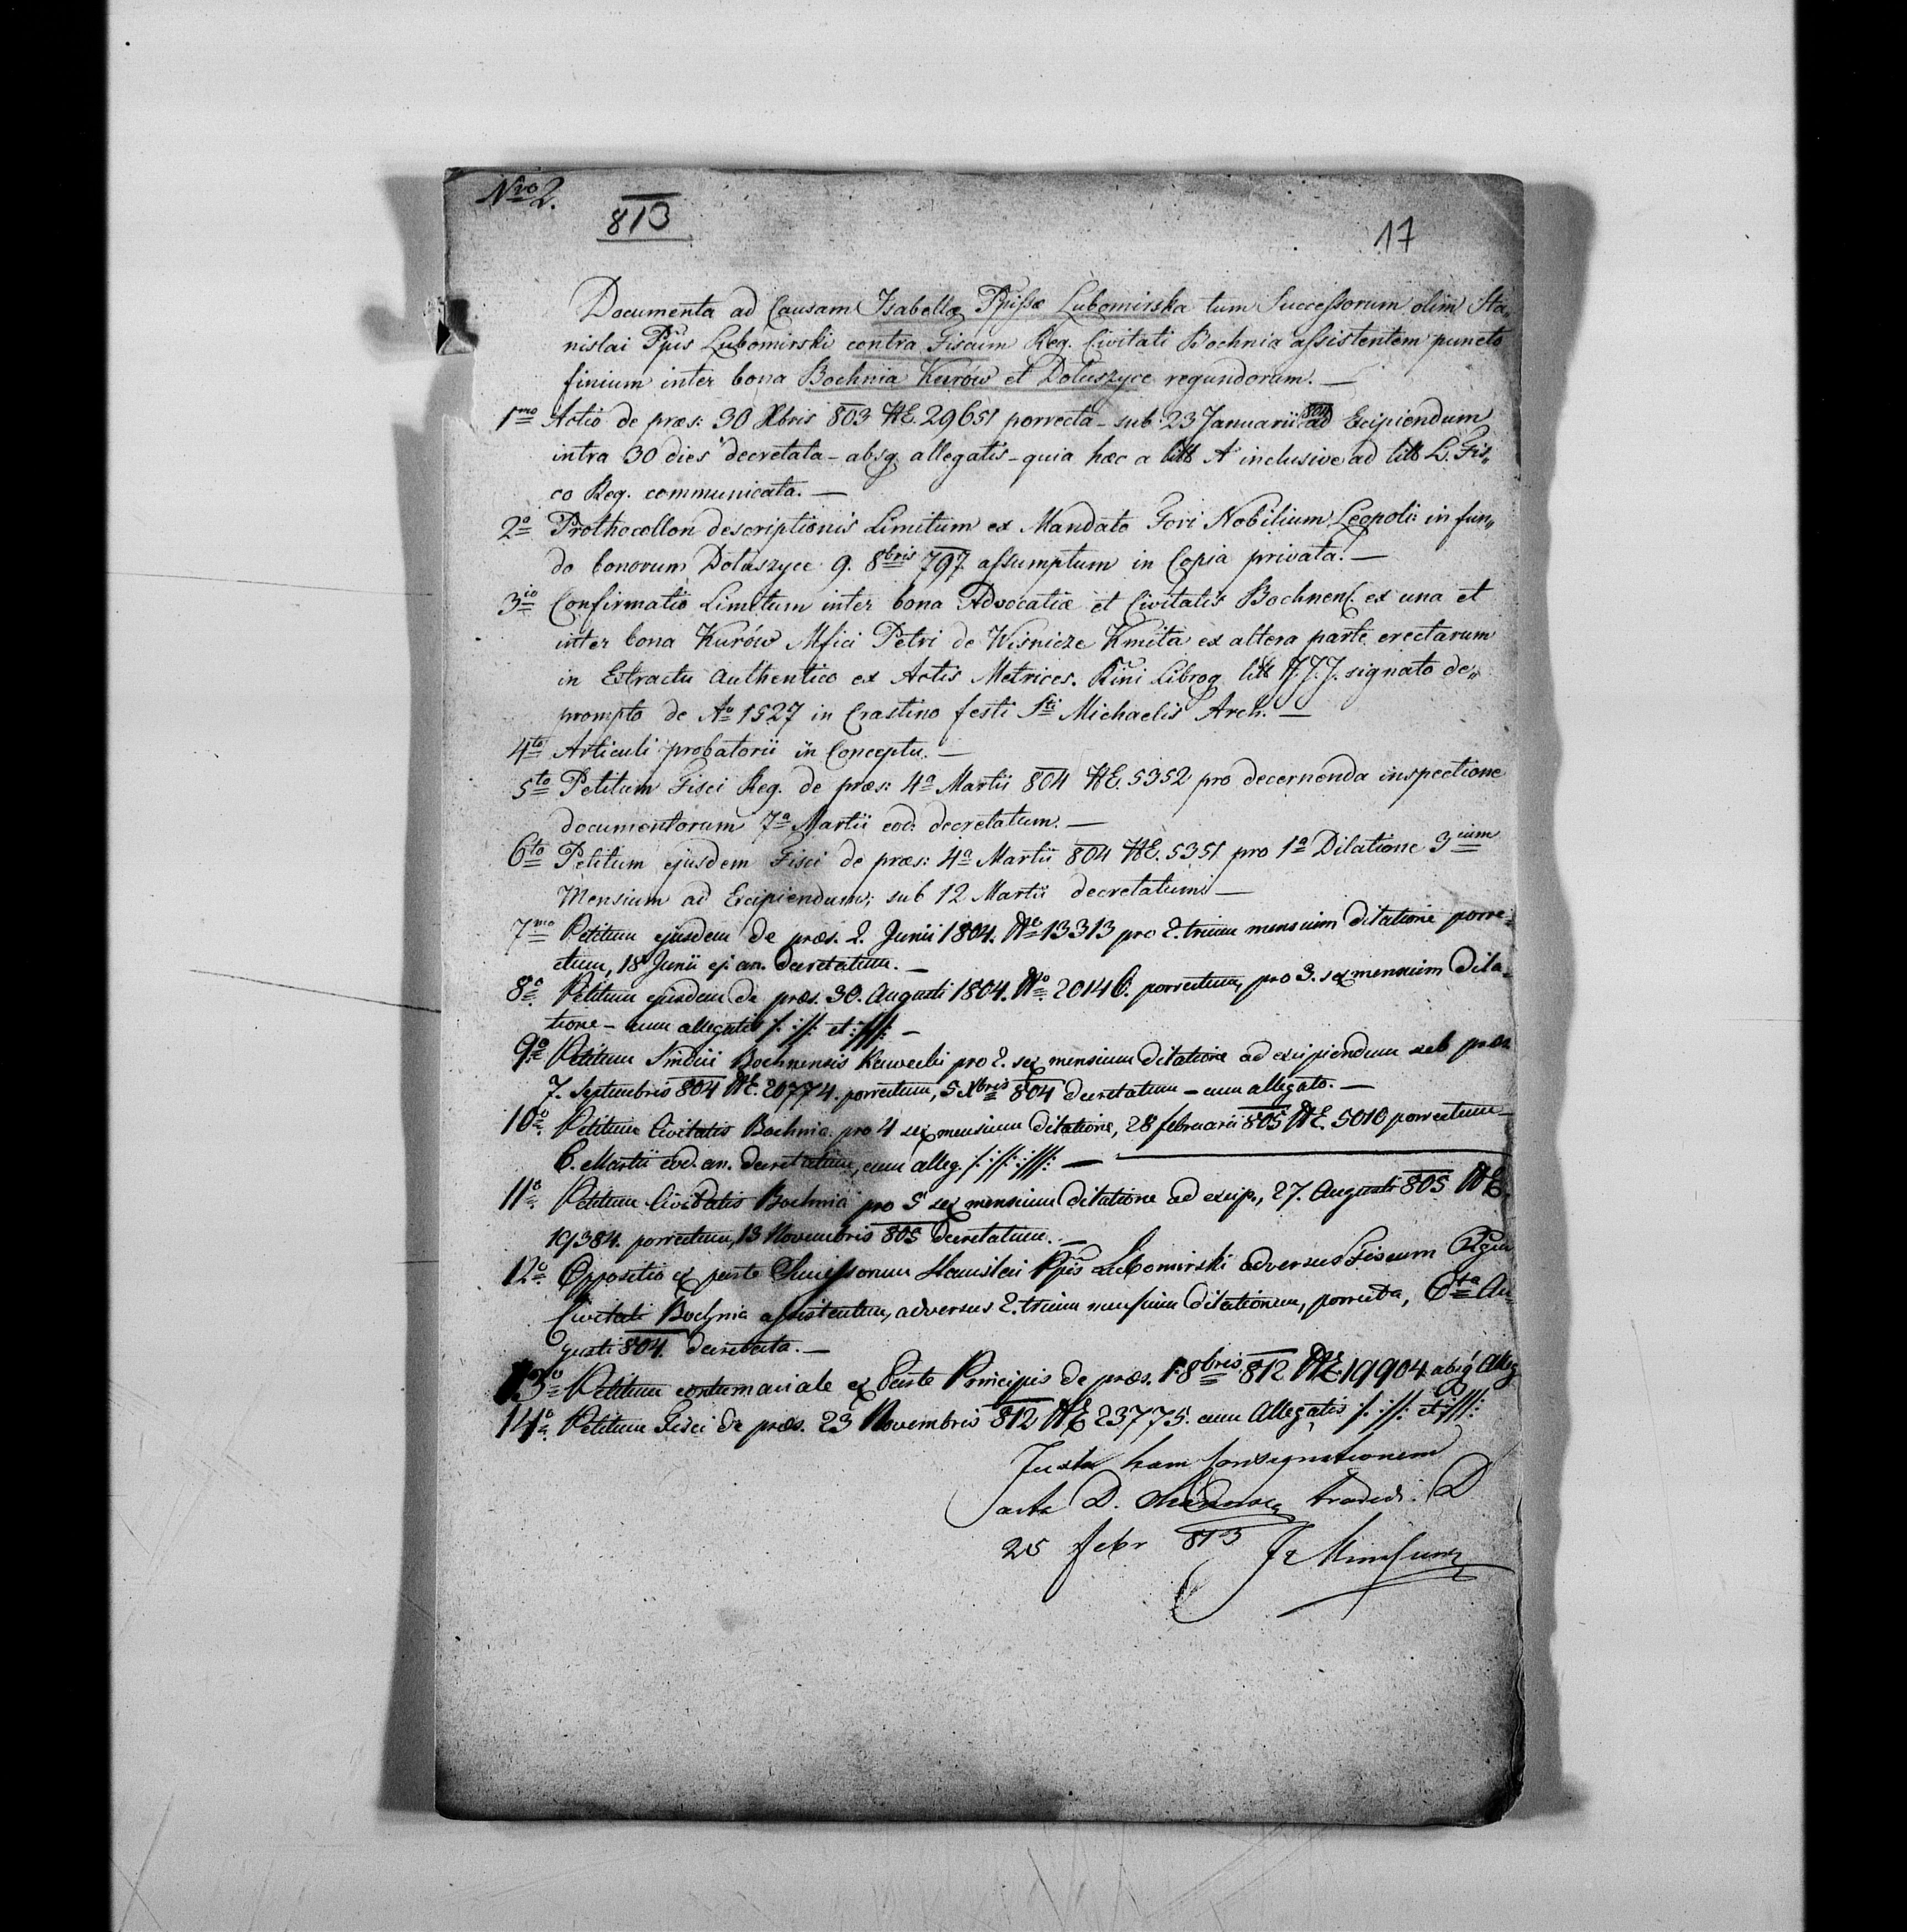 Nro 2.
813
17
Documenta ad Causam Isabellæ Ppissæ Lubomirska tum Successorum olim Sta„
nislai Ppis Lubomirski contra Fiscum Reg. Civitati Bochnia assistentem puncto
finium inter bona Bochnia Kurów et Doluszyce regundorum. —
1mo Actio de præs: 30 Xbris 803 NE. 29651 porrecta - sub 23 Januarii 804 ad Excipiendum
intra 30 dies decretata - absq allegatis - quia hæc a litt A inclusive ad litt L. Fis„
co Reg. communicata. —
2o Prothocollon descriptionis Limitum ex Mandato Fori Nobilium Leopoli: in fun„
do bonorum Doluszyce 9. 8bris 797 assumptum in Copia privata. —
3io Confirmatio Limitum inter bona Advocatiæ et Civitatis Bochnens. ex una et
inter bona Kurów Mfici Petri de Wisnicze Kmita ex altera parte erectarum
in Extractu Authentico ex Actis Metrices. Rini Libroq litt J.J.J. signato de„
prompto de Ao 1527 in Crastino festi Sti Michaelis Arch. —
4to Articuli probatorii in Conceptu. —
5to Petitum Fisci Reg. de præs: 4a Martii 804 NE. 5352 pro decernenda inspectione
documentorum 7a Martii eod: decretatum. —
6to Petitum ejusdem Fisci de præs: 4a Martii 804 NE. 5351 pro 1a Dilatione 3ium
Mensium ad Excipiendum; sub 12 Martii decretatum —
7mo Petitum ejusdem de præs. 2. Junii 1804. No 13313 pro 2. trium mensium dilatione porre„
ctum, 18 Junii ej. an. decretatum. —
8o. Petitum ejusdem de præs. 30. Augusti 1804. No. 20146. porrectum, pro 3. sex mensium dila„
tione - cum allegatis /. :/: //: et ://: —
9o. Petitum Sindici Bochnensis pro 2. sex mensium dilatione ad excipiendum sub præs
7. Septembris 804 NE. 20774. porrectum, 5 Xbris 804 decretatum - cum allegato. —
10o. Petitum Civitatis Bochnia pro 4 sex mensium dilatione, 28 februarii 805 NE. 5010 porrectum
6. Martii eod. an. decretatum, cum alleg. /. ://: :///: —
11o. Petitum Civitatis Bochnia pro 5 sex mensium dilatione ad excip., 27. Augusti 805 NE.
19384. porrectum, 13 Novembris 805 decretatum. —
12o. Oppositio ex parte Successorum Stanislai Ppis Lubomirski adversus Fiscum
Civitati Bochnia assistentem, adversus 2. trium mensium dilationem, porrecta, 6ta Au„
gusti 804. decretata. —
13o Petitum contumaciale ex Parte Principis de præs. 1. 8bris 812 NE. 19904 absq Alleg
14o. Petitum Fisci de præs. 23 Novembris 812 NE 23775. cum Allegatis /. ://: et :///:
Juxta hanc Consignationem
acta D. tradidi. D
25 febr 813